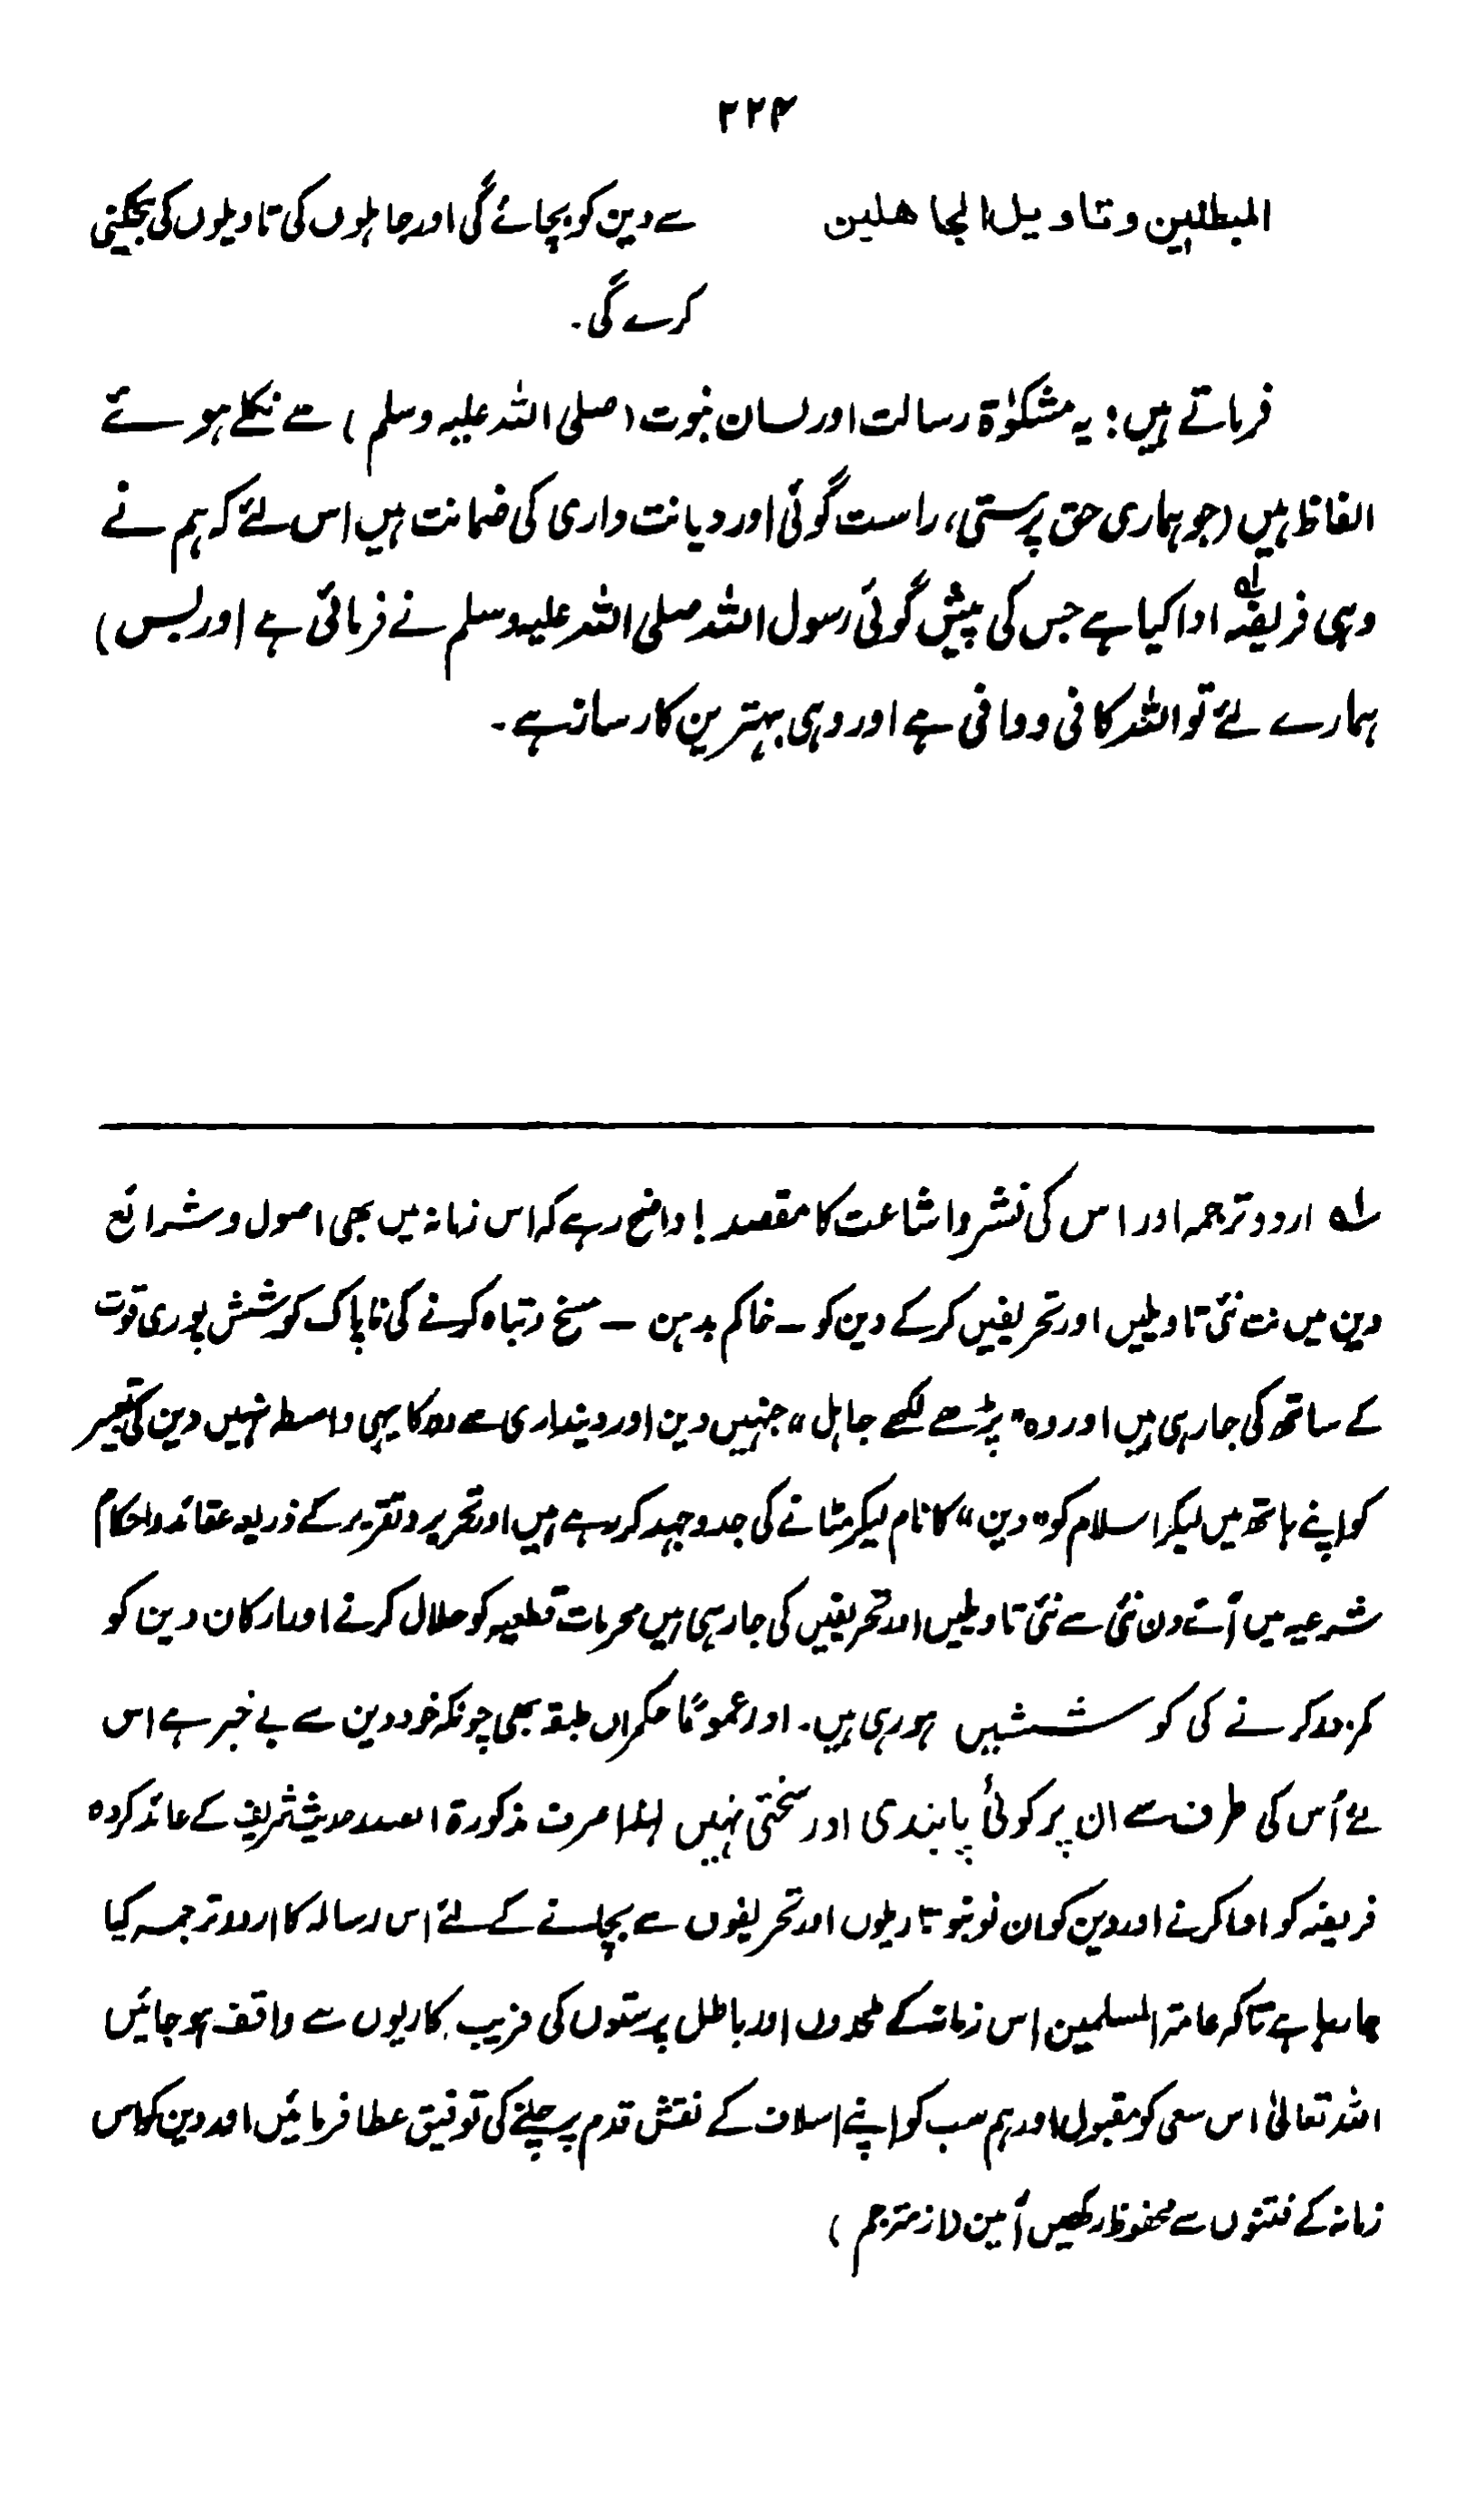 ۲۲۴
المبطلين وتاويل الجاهلين
سے دین کو بچائے گی اور جاہلوں کی تاویلوں کی بیخکنی
کرے گی۔
فرماتے ہیں: یہ مشکوٰۃ رسالت اور لسان نبوت (صلی اللہ علیہ وسلم) سے نکلے ہوئے
الفاظ ہیں (جو ہماری حق پرستی، راست گوئی اور دیانت داری کی ضمانت ہیں اس لئے کہ ہم نے
وہی فریضہ ؎۱ ادا کیا ہے جس کی پیش گوئی رسول اللہ صلی اللہ علیہ وسلم نے فرمائی ہے اور بس)
ہمارے لئے تو اللہ کافی و وافی ہے اور وہی بہترین کارساز ہے۔
؎۱ اردو ترجمہ اور اس کی نشر و اشاعت کا مقصد! واضح رہے کہ اس زمانہ میں بھی اصول و شرائع
دین میں نت نئی تاویلیں اور تحریفیں کر کے دین کو — خاکم بدہن — مسخ و تباہ کرنے کی ناپاک کوشش پوری قوت
کے ساتھ کی جا رہی ہیں اور وہ "پڑھے لکھے جاہل" جنہیں دین اور دینداری سے دور کا بھی واسطہ نہیں دین کی تعبیر
کو اپنے ہاتھ میں لیکر اسلام کو "دین" کا نام لیکر مٹانے کی جدوجہد کر رہے ہیں اور تحریر و تقریر کے ذریعہ عقائد و احکام
شرعیہ میں آئے دن نئی سے نئی تاویلیں اور تحریفیں کی جا رہی ہیں محرمات قطعیہ کو حلال کرنے اور ارکان دین کو
کمزور کرنے کی کوششیں ہو رہی ہیں۔ اور عموماً حکمراں طبقہ بھی چونکہ خود دین سے بے خبر ہے اس
لئے اُس کی طرف سے ان پر کوئی پابندی اور سختی نہیں لہٰذا صرف مذکورۃ الصدر حدیث شریف کے عائد کردہ
فریضہ کو ادا کرنے اور دین کو ان نو بنو تاویلوں اور تحریفوں سے بچانے کے لئے اس رسالہ کا اردو ترجمہ کیا
جا رہا ہے تاکہ عامۃ المسلمین اس زمانہ کے ملحدوں اور باطل پرستوں کی فریب کاریوں سے واقف ہو جائیں
اللہ تعالیٰ اس سعی کو مقبول اور ہم سب کو اپنے اسلاف کے نقش قدم پر چلنے کی توفیق عطا فرمائیں اور دین کو اس
زمانہ کے فتنوں سے محفوظ رکھیں آمین (از مترجم)